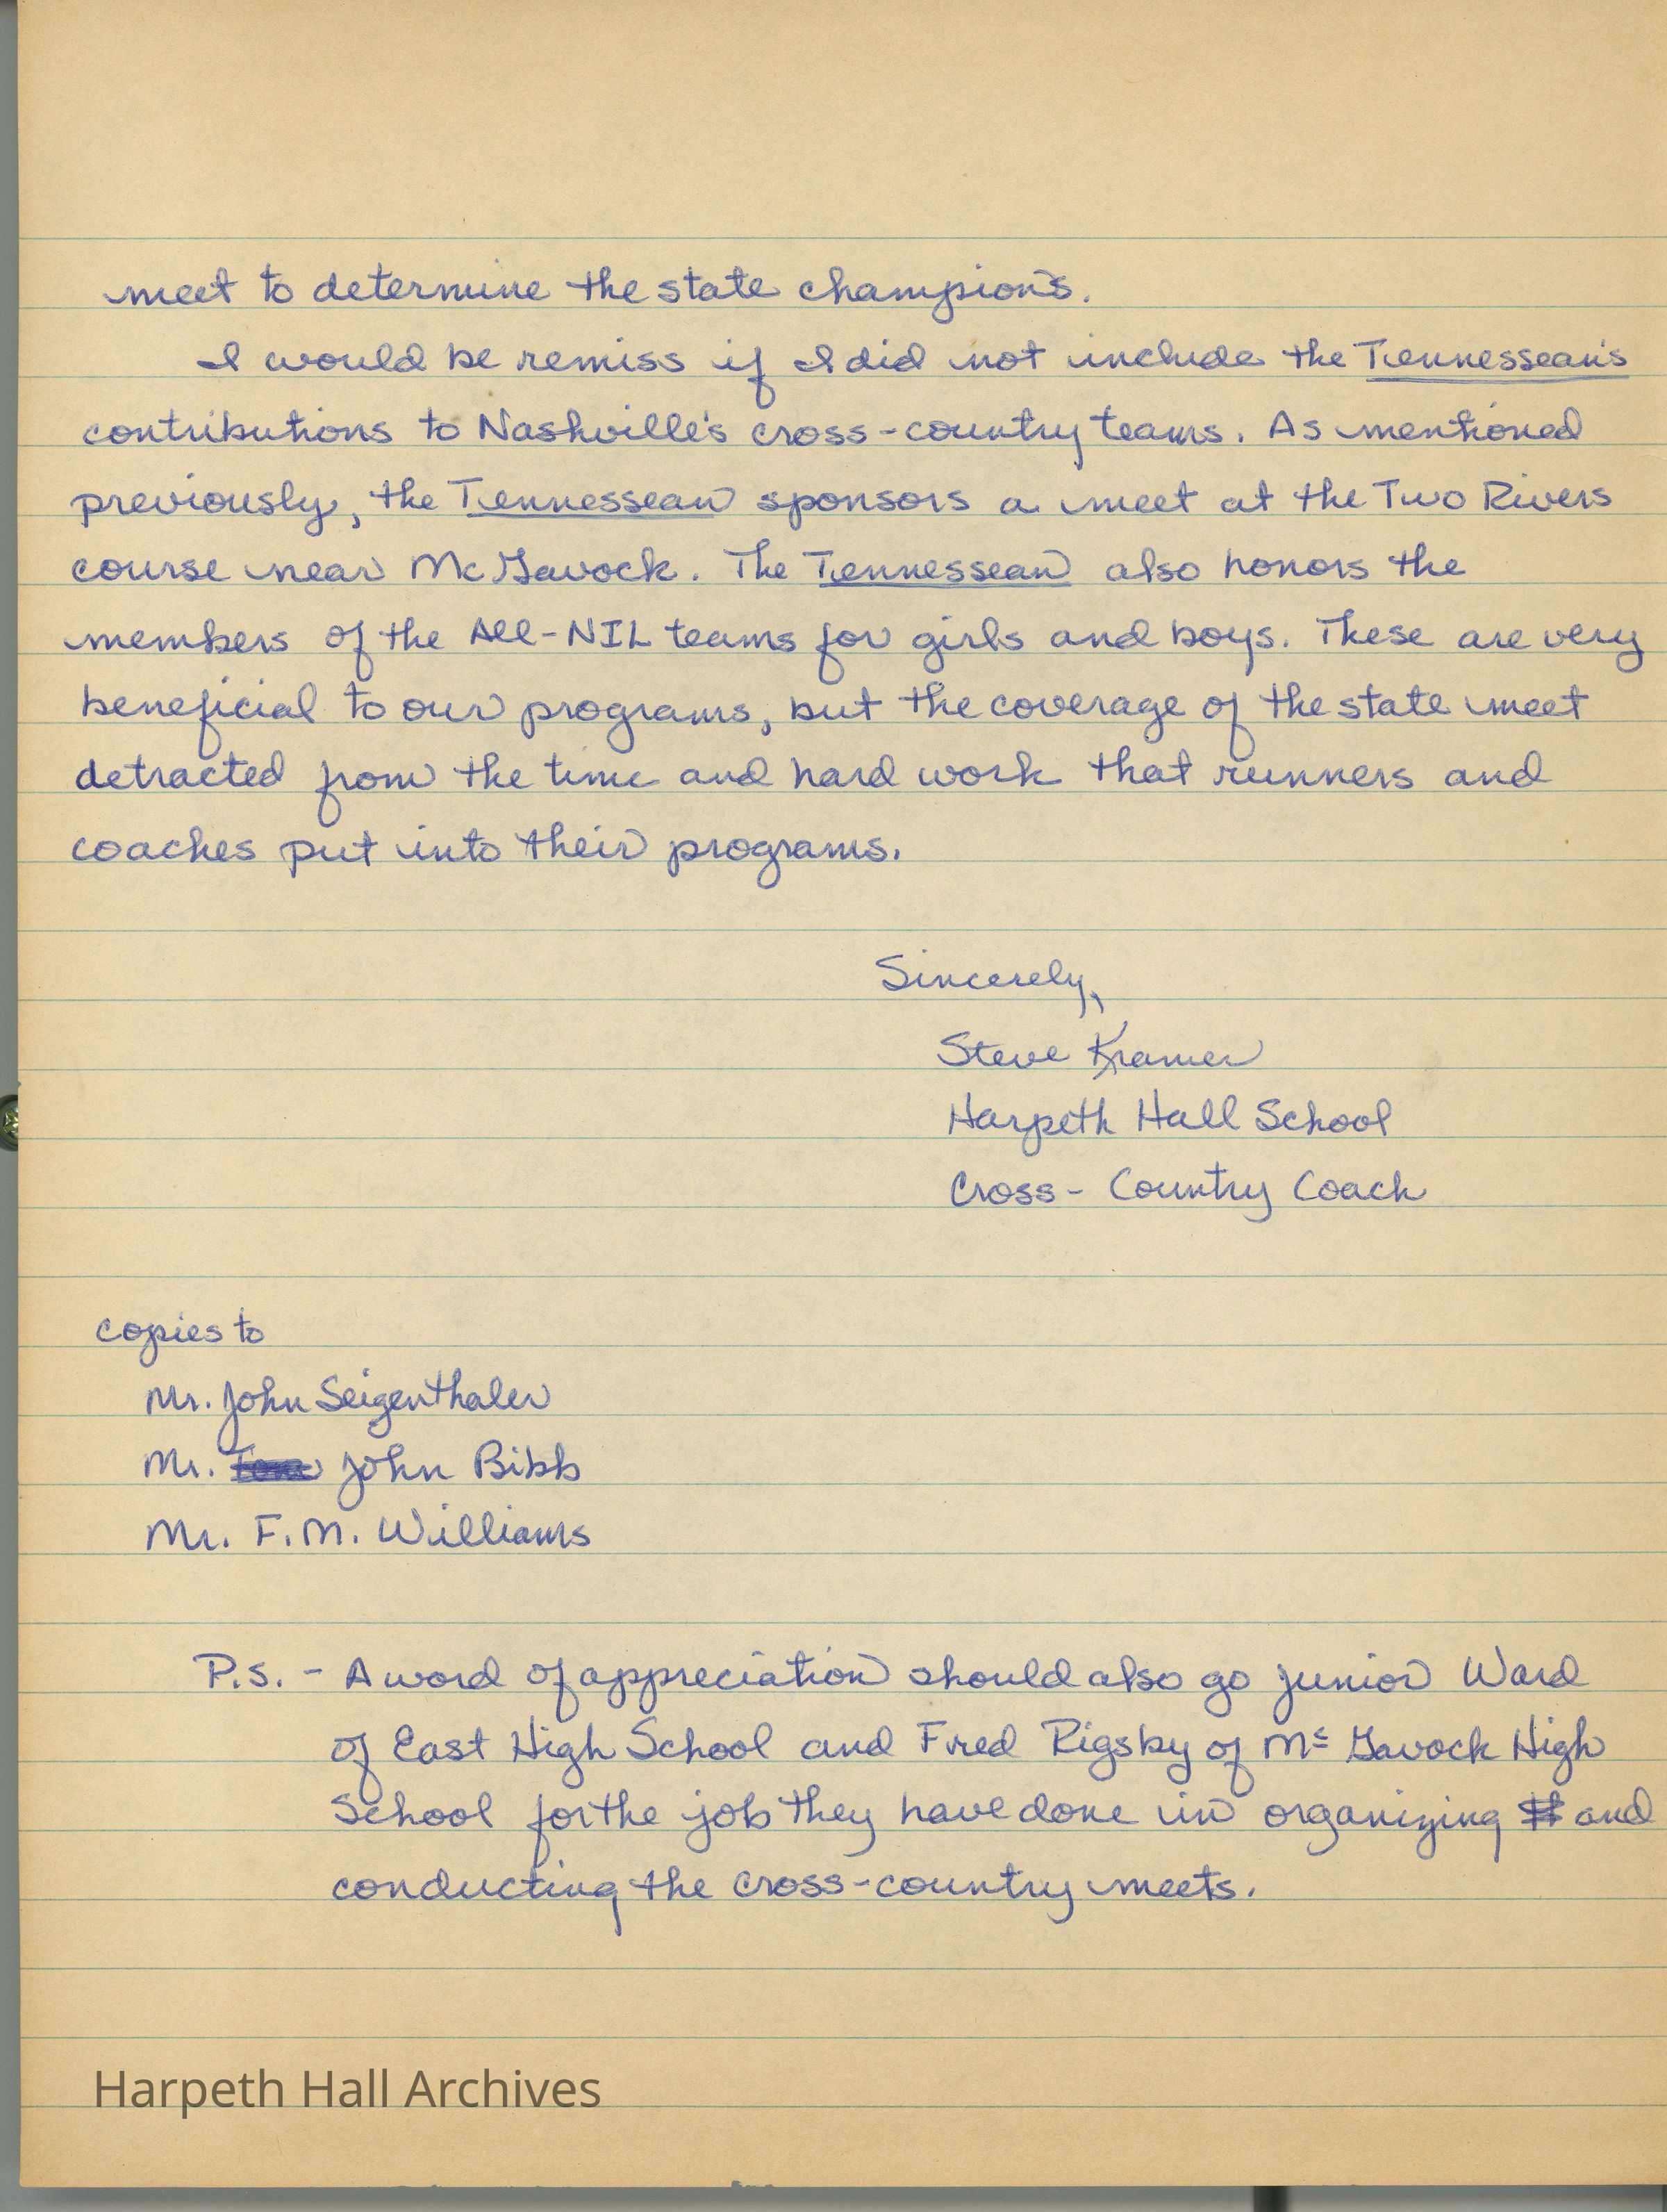 meet to determine the state champions.
I would be remiss if I did not include the Tennessean's
contributions to Nashville's cross-country teams. As mentioned
previously, the Tennessean sponsors a meet at the Two Rivers
course near McGavock. The Tennessean also honors the
members of the All-NIL teams for girls and boys. These are very
beneficial to our programs, but the coverage of the state meet
detracted from the time and hard work that runners and
coaches put into their programs.
Sincerely,
Steve Kramer
Harpeth Hall School
Cross-Country Coach
copies to
Mr. John Seigenthaler
Mr. John Bibb
Mr. F.M. Williams
P.S. - A word of appreciation should also go Junior Ward
of East High School and Fred Rigsby of Mc Gavock High
School for the job they have done in organizing and
conducting the cross-country meets.
Harpeth Hall Archives